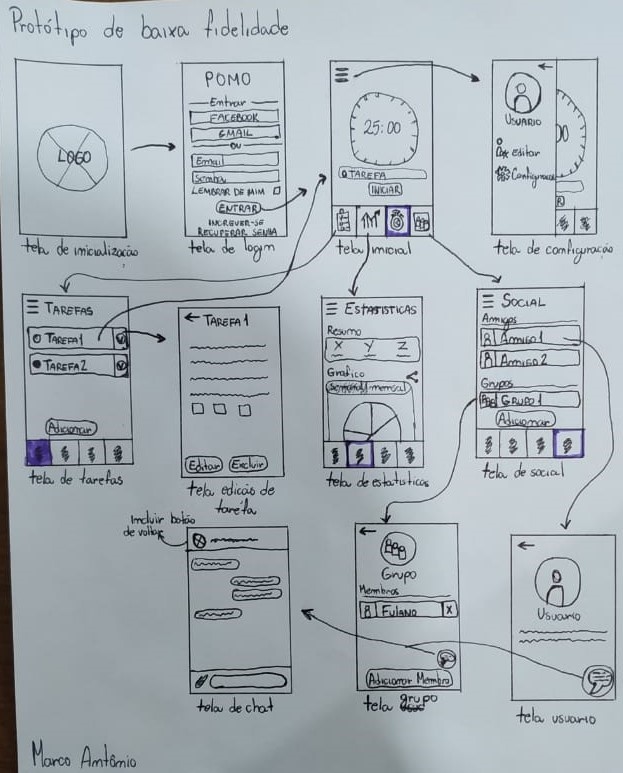 Protótipo de baixa fidelidade
LOGO
tela de inicialização
POMO
Entrar
FACEBOOK
GMAIL
OU
Email
Senha
LEMBRAR DE MIM
ENTRAR
INCREVER-SE
RECUPERAR SENHA
tela de login
25:00
TAREFA
INICIAR
tela inicial
USUARIO
Editar
Configuracao
tela de configuração
TAREFAS
TAREFA1
TAREFA2
Adicionar
tela de tarefas
TAREFA1
Editar
Excluir
tela edição de
tarefa
ESTATISTICAS
Resumo
X Y Z
Grafico
semanal/mensal
tela de estatisticas
SOCIAL
Amigos
AMIGO1
AMIGO2
Grupos
GRUPO1
Adicionar
tela de social
Incluir botão
de voltar
tela de chat
Grupo
Membros
FULANO X
Adicionar Membro
tela grupo
Usuario
tela usuário
Marco Antônio